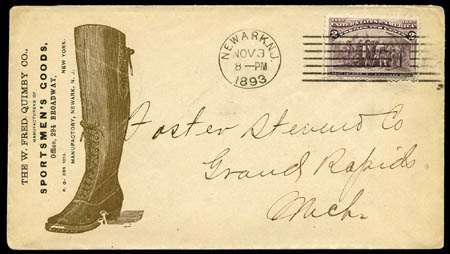 THE W. FRED. QUIMBY CO.,
MANUFACTURERS OF
SPORTSMEN'S GOODS.
Office, 294 BROADWAY,
NEW YORK.
MANUFACTORY, NEWARK, N. J.
NEWARK, N.J.
NOV 3
8-PM
1893
UNITED STATES OF AMERICA
2 2
Foster Stevens Co
Grand Rapids
Mich.